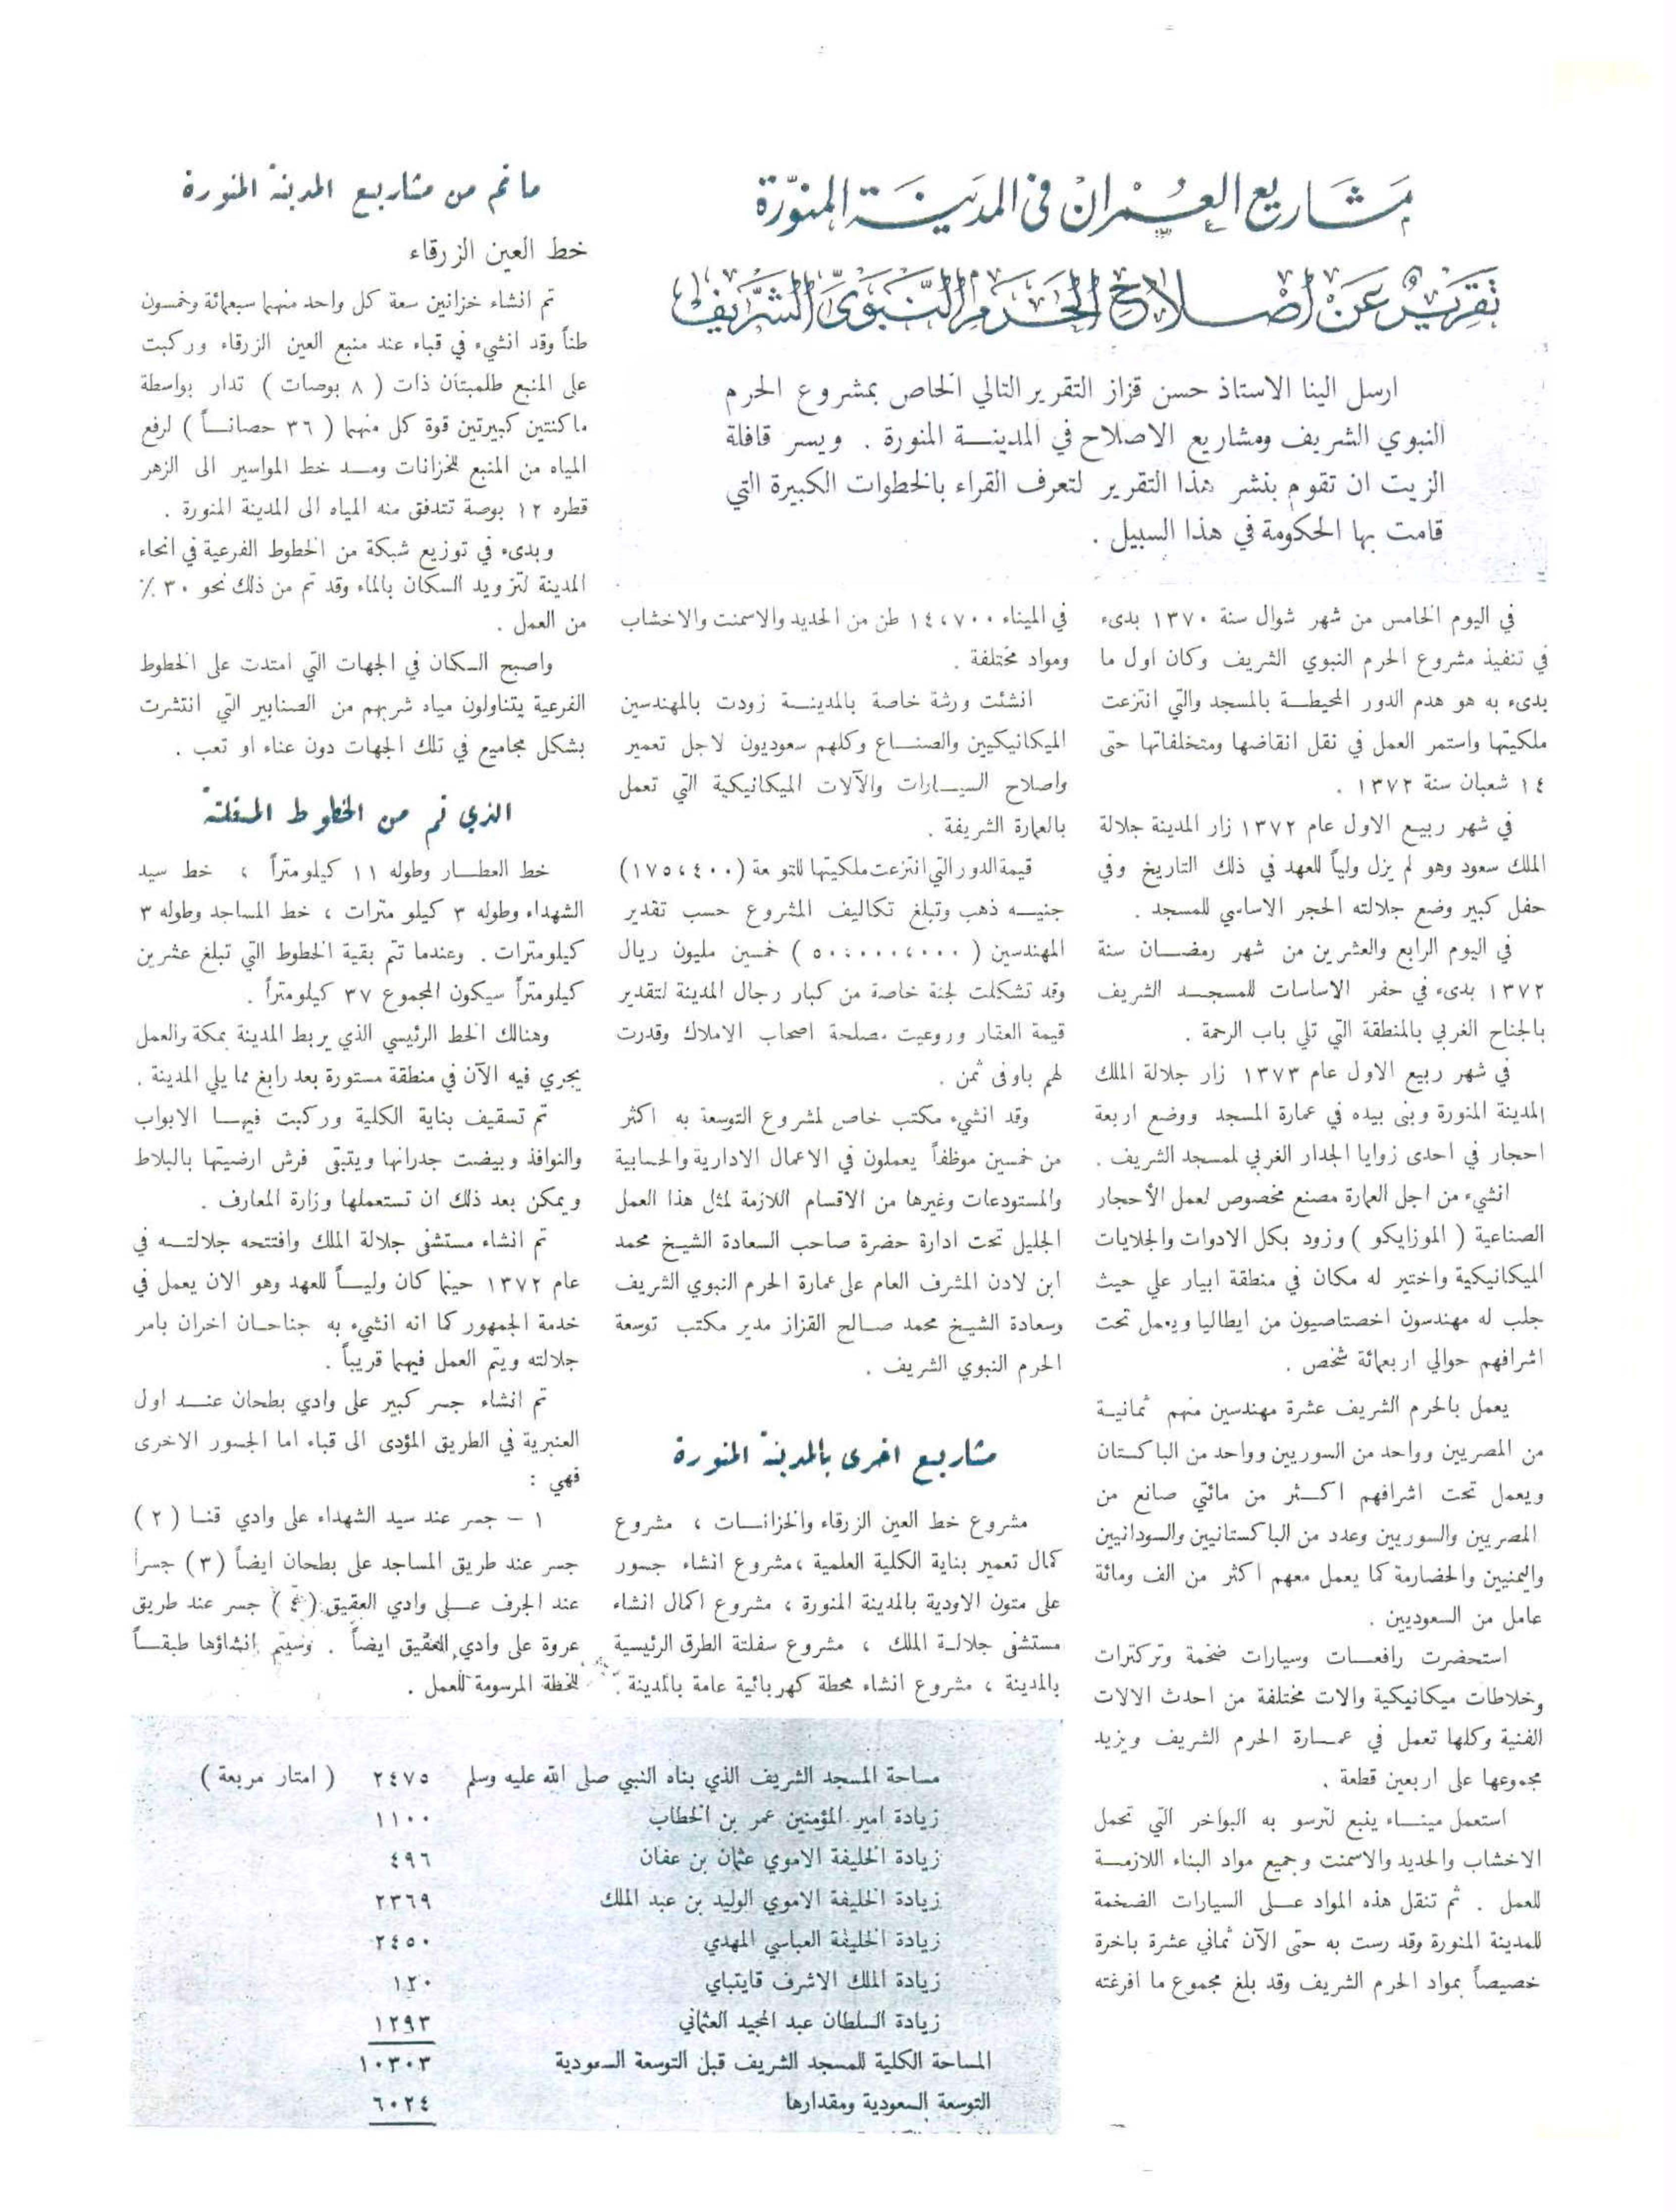 مشاريع العمران في المدينة المنوّرة
تقرير عن اصلاح الحرم النبوي الشريف
ارسل الينا الاستاذ حسن قزاز التقرير التالي الخاص بمشروع الحرم
النبوي الشريف ومشاريع الاصلاح في المدينة المنورة . ويسر قافلة
الزيت ان تقوم بنشر هذا التقرير لتعرف القراء بالخطوات الكبيرة التي
قامت بها الحكومة في هذا السبيل .
في اليوم الخامس من شهر شوال سنة ١٣٧٠ بدىء
في تنفيذ مشروع الحرم النبوي الشريف وكان اول ما
بدىء به هو هدم الدور المحيطة بالمسجد والتي انتزعت
ملكيتها واستمر العمل في نقل انقاضها ومتخلفاتها حتى
١٤ شعبان سنة ١٣٧٢ .
في شهر ربيع الاول عام ١٣٧٢ زار المدينة جلالة
الملك سعود وهو لم يزل ولياً للعهد في ذلك التاريخ وفي
حفل كبير وضع جلالته الحجر الاساسي للمسجد .
في اليوم الرابع والعشرين من شهر رمضان سنة
١٣٧٢ بدىء في حفر الاساسات للمسجد الشريف
بالجناح الغربي بالمنطقة التي تلي باب الرحمة .
في شهر ربيع الاول عام ١٣٧٣ زار جلالة الملك
المدينة المنورة وبنى بيده في عمارة المسجد ووضع اربعة
احجار في احدى زوايا الجدار الغربي لمسجد الشريف .
انشيء من اجل العمارة مصنع مخصوص لعمل الأحجار
الصناعية ( الموزايكو ) وزود بكل الادوات والجلايات
الميكانيكية واختير له مكان في منطقة ابيار علي حيث
جلب له مهندسون اخصتاصيون من ايطاليا ويعمل تحت
اشرافهم حوالي اربعمائة شخص .
يعمل بالحرم الشريف عشرة مهندسين منهم ثمانية
من المصريين وواحد من السوريين وواحد من الباكستان
ويعمل تحت اشرافهم اكثر من مائتي صانع من
المصريين والسوريين وعدد من الباكستانيين والسودانيين
واليمنيين والحضارمة كما يعمل معهم اكثر من الف ومائة
عامل من السعوديين .
استحضرت رافعات وسيارات ضخمة وتركترات
وخلاطات ميكانيكية والات مختلفة من احدث الالات
الفنية وكلها تعمل في عمارة الحرم الشريف ويزيد
مجموعها على اربعين قطعة .
استعمل ميناء ينبع لترسو به البواخر التي تحمل
الاخشاب والحديد والاسمنت وجميع مواد البناء اللازمة
للعمل . ثم تنقل هذه المواد على السيارات الضخمة
للمدينة المنورة وقد رست به حتى الآن ثماني عشرة باخرة
خصيصاً بمواد الحرم الشريف وقد بلغ مجموع ما افرغته
في الميناء ١٤،٧٠٠ طن من الحديد والاسمنت والاخشاب
ومواد مختلفة .
انشئت ورشة خاصة بالمدينة زودت بالمهندسين
الميكانيكيين والصناع وكلهم سعوديون لاجل تعمير
واصلاح السيارات والآلات الميكانيكية التي تعمل
بالعمارة الشريفة .
قيمة الدور التي انتزعت ملكيتها للتوسعة (١٧٥،٤٠٠)
جنيه ذهب وتبلغ تكاليف المشروع حسب تقدير
المهندسين ( ٥٠،٠٠٠،٠٠٠ ) خمسين مليون ريال
وقد تشكلت لجنة خاصة من كبار رجال المدينة لتقدير
قيمة العقار وروعيت مصلحة اصحاب الاملاك وقدرت
لهم باوفى ثمن .
وقد انشيء مكتب خاص لمشروع التوسعة به اكثر
من خمسين موظفاً يعملون في الاعمال الادارية والحسابية
والمستودعات وغيرها من الاقسام اللازمة لمثل هذا العمل
الجليل تحت ادارة حضرة صاحب السعادة الشيخ محمد
ابن لادن المشرف العام على عمارة الحرم النبوي الشريف
وسعادة الشيخ محمد صالح القزاز مدير مكتب توسعة
الحرم النبوي الشريف .
مشاريع اخرى بالمدينة المنورة
مشروع خط العين الزرقاء والخزانات ، مشروع
كمال تعمير بناية الكلية العلمية ، مشروع انشاء جسور
على متون الاودية بالمدينة المنورة ، مشروع اكمال انشاء
مستشفى جلالة الملك ، مشروع سفلتة الطرق الرئيسية
بالمدينة ، مشروع انشاء محطة كهربائية عامة بالمدينة .
ما تم من مشاريع المدينة المنورة
خط العين الزرقاء
تم انشاء خزانين سعة كل واحد منهما سبعمائة وخمسون
طناً وقد انشيء في قباء عند منبع العين الزرقاء وركبت
على المنبع طلمبتان ذات ( ٨ بوصات ) تدار بواسطة
ماكنتين كبيرتين قوة كل منهما ( ٣٦ حصاناً ) لرفع
المياه من المنبع للخزانات ومد خط المواسير الى الزهر
قطره ١٢ بوصة تتدفق منه المياه الى المدينة المنورة .
وبدىء في توزيع شبكة من الخطوط الفرعية في انحاء
المدينة لتزويد السكان بالماء وقد تم من ذلك نحو ٣٠ ٪
من العمل .
واصبح السكان في الجهات التي امتدت على الخطوط
الفرعية يتناولون مياه شربهم من الصنابير التي انتشرت
بشكل مجاميع في تلك الجهات دون عناء او تعب .
الذي تم من الخطوط المسفلتة
خط المطار وطوله ١١ كيلومتراً ، خط سيد
الشهداء وطوله ٣ كيلو مترات ، خط المساجد وطوله ٣
كيلومترات . وعندما تتم بقية الخطوط التي تبلغ عشرين
كيلومتراً سيكون المجموع ٣٧ كيلومتراً .
وهنالك الخط الرئيسي الذي يربط المدينة بمكة والعمل
يجري فيه الآن في منطقة مستورة بعد رابغ مما يلي المدينة .
تم تسقيف بناية الكلية وركبت فيها الابواب
والنوافذ وبيضت جدرانها ويتبقى فرش ارضيتها بالبلاط
ويمكن بعد ذلك ان تستعملها وزارة المعارف .
تم انشاء مستشفى جلالة الملك وافتتحه جلالته في
عام ١٣٧٢ حينما كان ولياً للعهد وهو الان يعمل في
خدمة الجمهور كما انه انشيء به جناحان اخران بامر
جلالته ويتم العمل فيهما قريباً .
تم انشاء جسر كبير على وادي بطحان عند اول
العنبرية في الطريق المؤدى الى قباء اما الجسور الاخرى
فهي :
١ – جسر عند سيد الشهداء على وادي قنا ( ٢ )
جسر عند طريق المساجد على بطحان ايضاً (٣) جسرا
عند الجرف على وادي العقيق (٤) جسر عند طريق
عروة على وادي العقيق ايضاً . وسيتم انشاؤها طبقاً
للخطة المرسومة للعمل .
مساحة المسجد الشريف الذي بناه النبي صلى الله عليه وسلم ٢٤٧٥ ( امتار مربعة )
زيادة امير المؤمنين عمر بن الخطاب ١١٠٠
زيادة الخليفة الاموي عثمان بن عفان ٤٩٦
زيادة الخليفة الاموي الوليد بن عبد الملك ٢٣٦٩
زيادة الخليفة العباسي المهدي ٢٤٥٠
زيادة الملك الاشرف قايتباي ١٢٠
زيادة السلطان عبد المجيد العثماني ١٢٩٣
المساحة الكلية للمسجد الشريف قبل التوسعة السعودية ١٠٣٠٣
التوسعة السعودية ومقدارها ٦٠٢٤